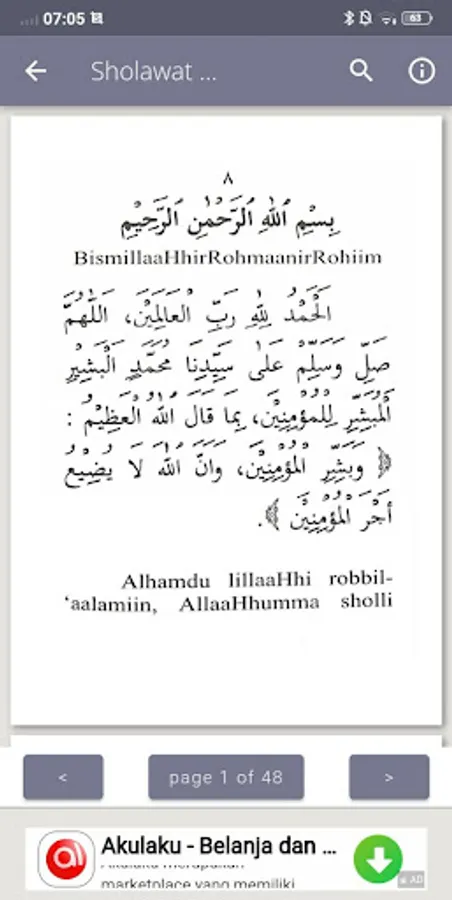 07:05
63
Sholawat ...
٨
بِسْمِ اللهِ الرَّحْمٰنِ الرَّحِيْمِ
BismillaaHhirRohmaanirRohiim
الْحَمْدُ لِلّٰهِ رَبِّ الْعَالَمِيْنَ، اَللّٰهُمَّ
صَلِّ وَسَلِّمْ عَلَى سَيِّدِنَا مُحَمَّدٍ الْبَشِيْرِ
الْمُبَشِّرِ لِلْمُؤْمِنِيْنَ، بِمَا قَالَ اللهُ الْعَظِيْمُ :
﴿ وَبَشِّرِ الْمُؤْمِنِيْنَ، وَاَنَّ اللهَ لَا يُضِيْعُ
أَجْرَ الْمُؤْمِنِيْنَ ﴾.
Alhamdu lillaaHhi robbil-
‘aalamiin, AllaaHhumma sholli
< page 1 of 48 >
Akulaku - Belanja dan ...
marketplace yang memiliki
AD